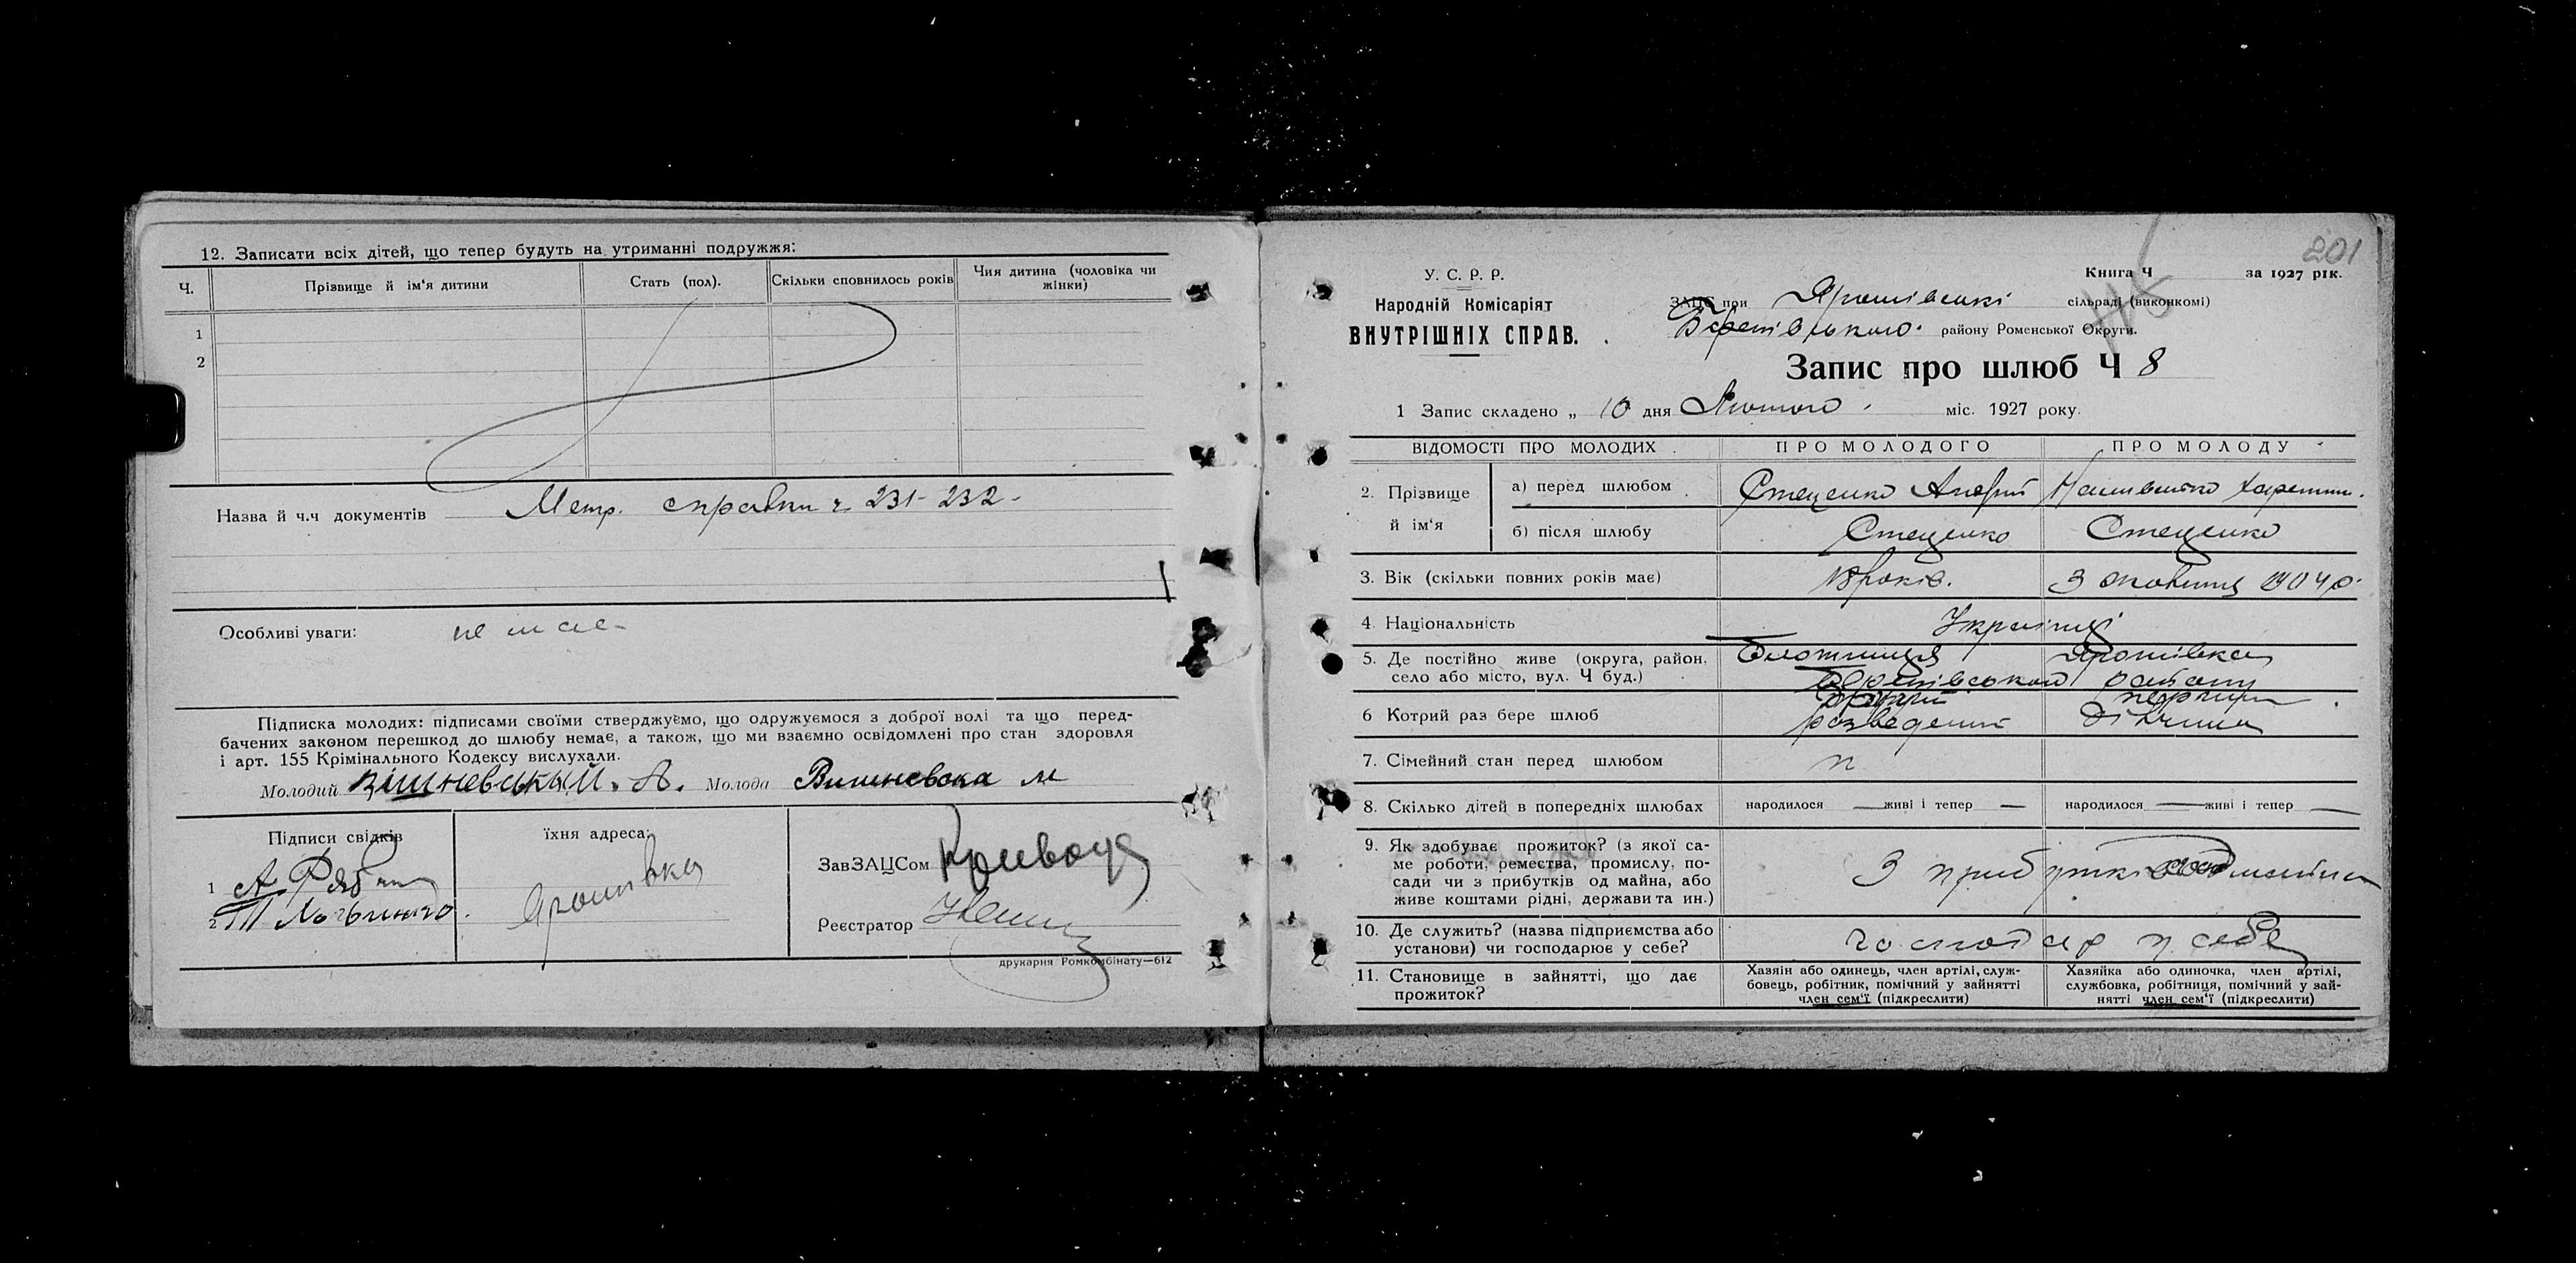 12. Записати всіх дітей, що тепер будуть на утриманні подружжя:
Ч. Прізвище й ім'я дитини Стать (пол). Скільки сповнилось років Чия дитина (чоловіка чи жінки)
1
2
Назва й ч.ч документів Метр. справки ч 231-232-
Особливі уваги: немає
Підписка молодих: підписами своїми стверджуємо, що одружуємося з доброї волі та що перед-
бачених законом перешкод до шлюбу немає, а також, що ми взаємно освідомлені про стан здоровля
і арт. 155 Крімінального Кодексу вислухали.
Молодий Вишневський. А. Молода Вишневска М
Підписи свідків їхня адреса:
ЗавЗАЦСом
1 А
2
Ярошівка
Реєстратор
друкарня Ромкомбінату—612
201
У. С. Р. Р. Книга Ч за 1927 рік.
Народній Комісаріят ЗАЦС при Ярошівські сільраді (виконкомі)
ВНУТРІШНІХ СПРАВ. району Роменської Округи.
Запис про шлюб Ч 8
1 Запис складено „ 10 дня Лютого міс. 1927 року.
ВІДОМОСТІ ПРО МОЛОДИХ ПРО МОЛОДОГО ПРО МОЛОДУ
2. Прізвище й ім'я а) перед шлюбом Стеценко Андрій
б) після шлюбу Стеценко Стеценко
3. Вік (скільки повних років має) років. 3 жовтня 1904 р.
4. Національність Українці
5. Де постійно живе (округа, район, Ярошівка
село або місто, вул. Ч буд.) району
6 Котрий раз бере шлюб другий перший
розведений дівчина
7. Сімейний стан перед шлюбом
8. Скілько дітей в попередніх шлюбах народилося — живі і тепер — народилося — живі і тепер —
9. Як здобуває прожиток? (з якої са-
ме роботи, ремества, промислу, по-
сади чи з прибутків од майна, або З прибутків од майна
живе коштами рідні, держави та ин.)
10. Де служить? (назва підприємства або
установи) чи господарює у себе? господар у себе
11. Становище в зайнятті, що дає
прожиток?
Хазяін або одинець, член артілі, служ-
бовець, робітник, помічний у зайнятті
член сем'ї (підкреслити)
Хазяйка або одиночка, член артілі,
службовка, робітниця, помічний у зай-
нятті член сем'ї (підкреслити)